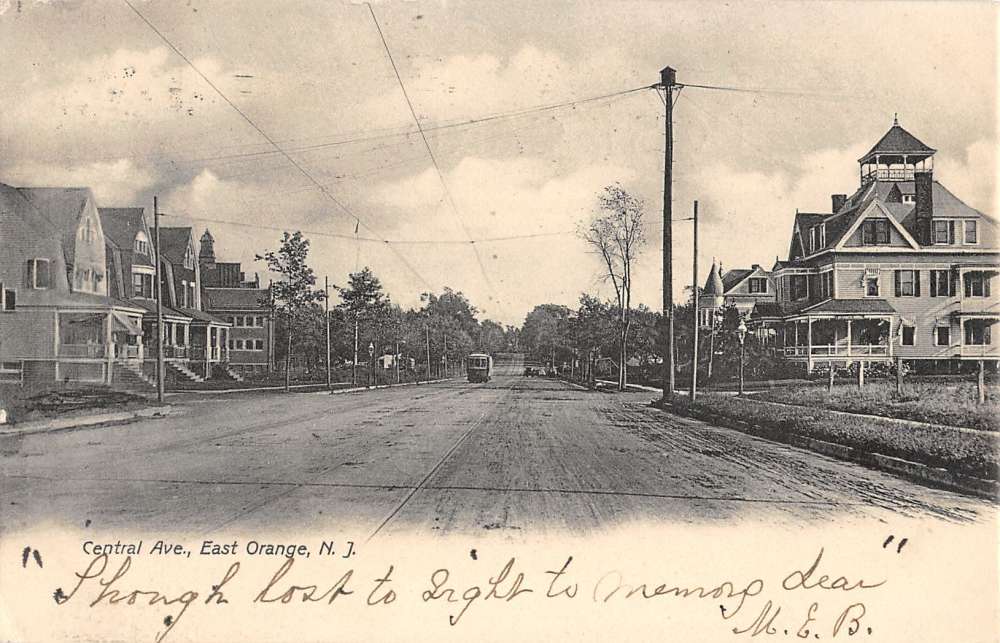 Central Ave., East Orange, N. J.
" Though lost to sight to memory dear "
M. E. B.